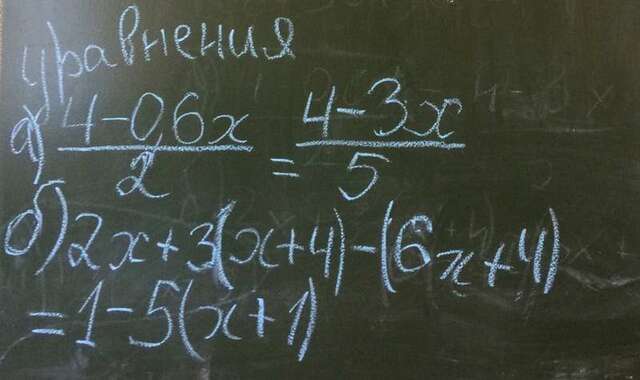 уравнения
а) 4-0,6x/2 = 4-3x/5
б) 2x+3(x+4)-(6x+4)
=1-5(x+1)